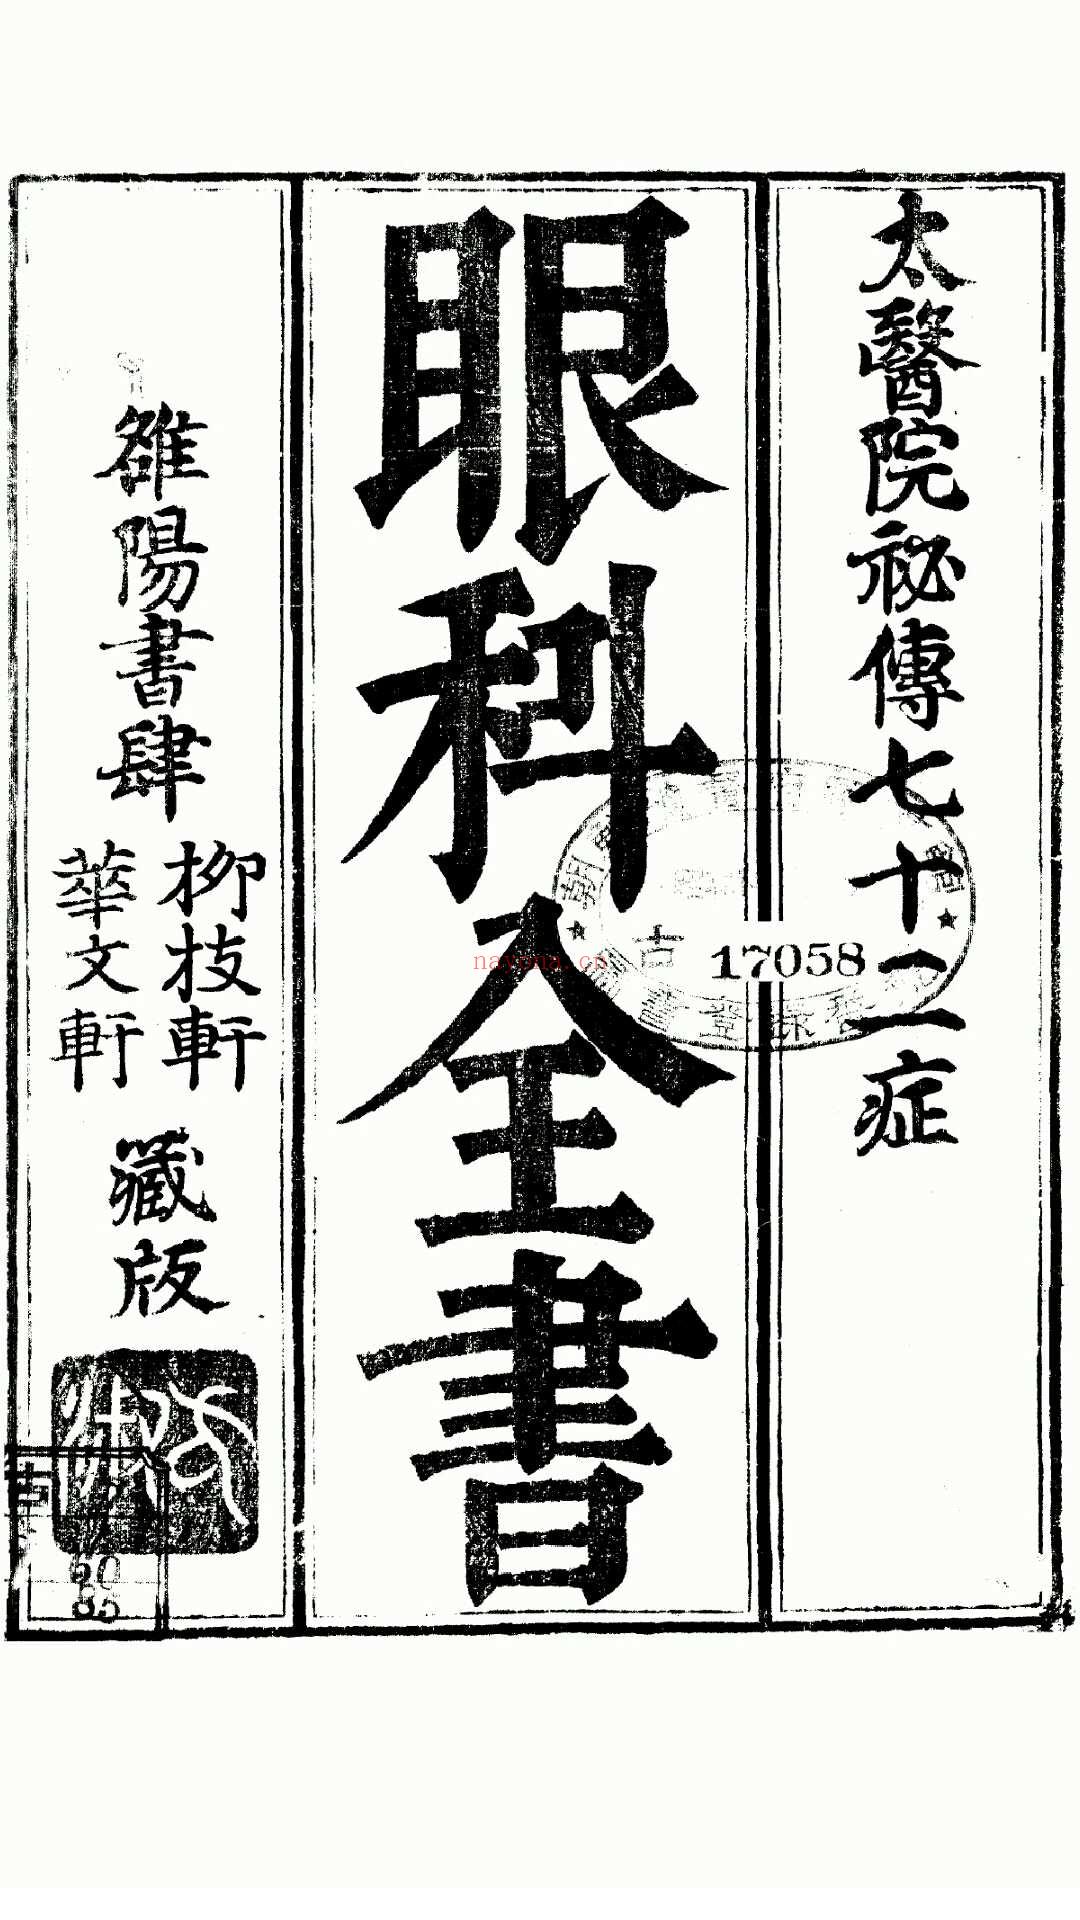 太醫院祕傳七十二症
眼科全書
雒陽書肆
柳枝軒
華文軒
藏版
古
17058
nayona.cn